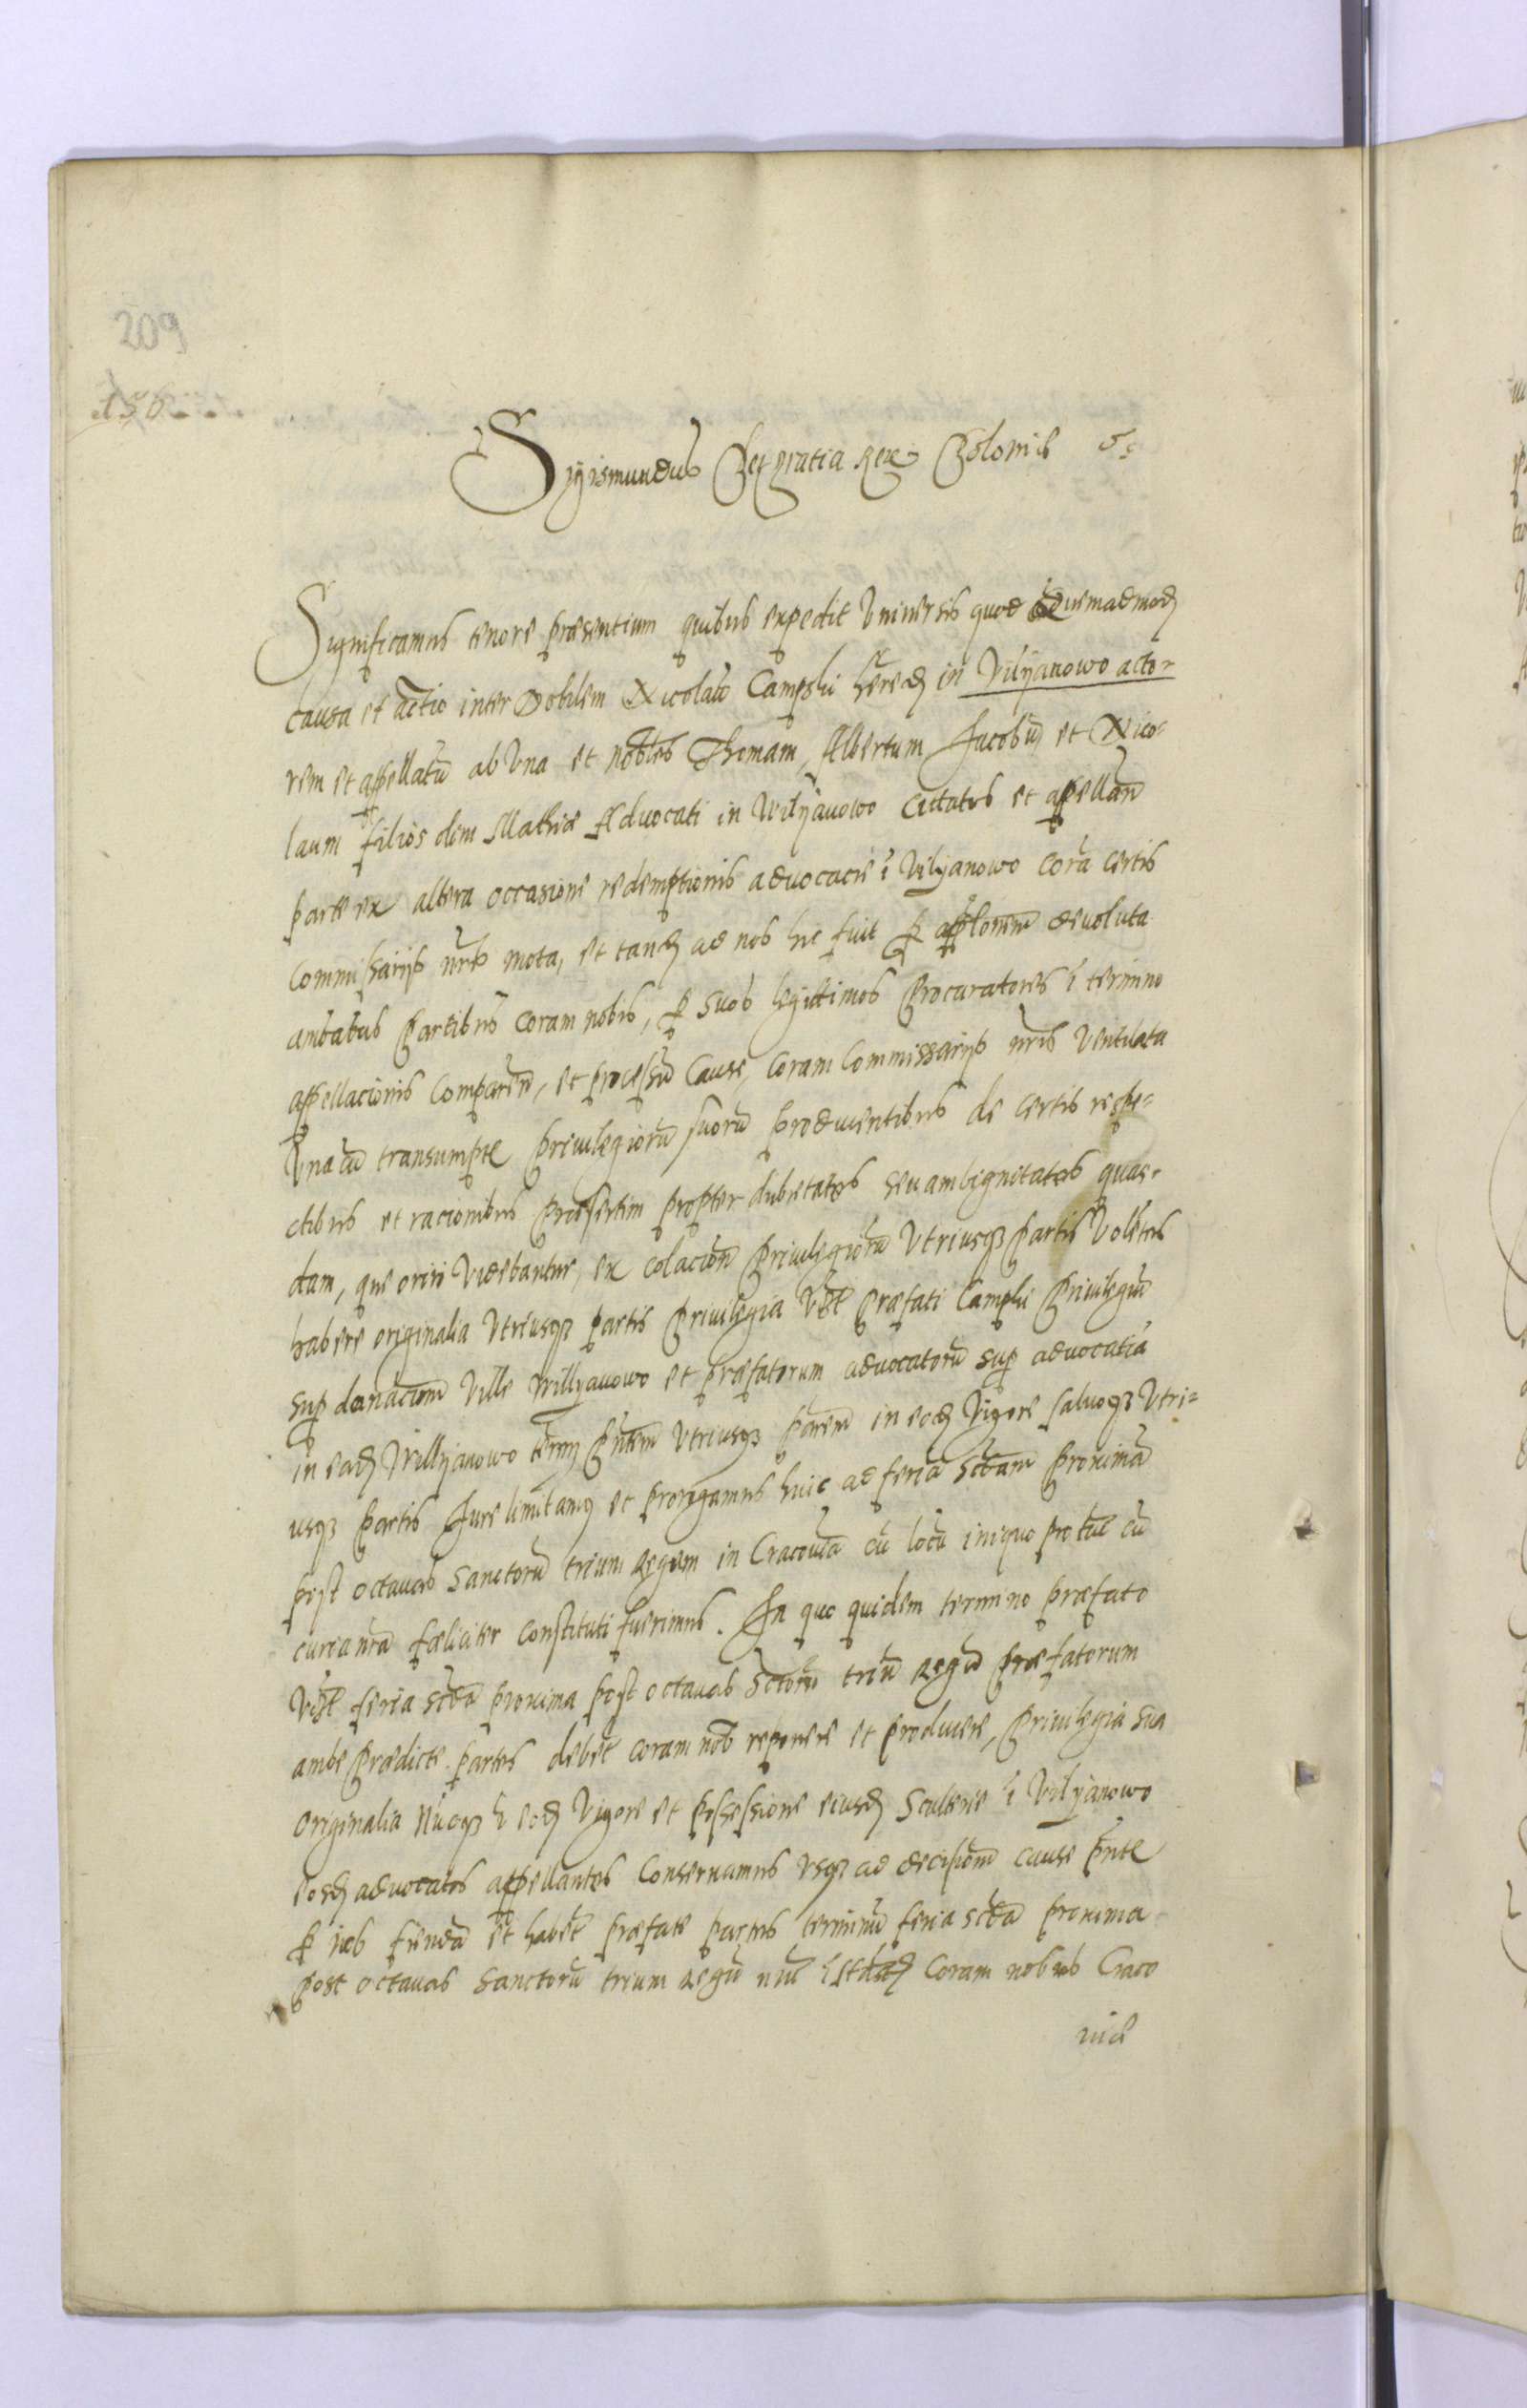 209
Sigismundus Dei gratia Rex Poloniæ &c
Significamus tenore præsentium quibus expedit Universis quod quemadmodū
causa et actio inter Nobilem Nicolaū Campski hæredē in Vilyanowo acto-
rem et appellatū ab Una et nobiles Thomam, Albertum Jacobū et Nico-
laum filios olim Mathiæ Advocati in Wilyanowo citatos et appellan̄
parte ex altera occasione redemptionis advocacie ī Vilyanowo corā certis
Commissarijs nr̄is mota, et tandē ad nos hic fuit p̱ applōnem devoluta
ambabus Partibus coram nobis, p̱ suos legittimos Procuratores ī termino
appellacionis comparen̄, et processū Cause, coram Commissarijs nr̄is Ventilata
Una cū transumpte Privilegiorū suorū producentibus de certis respe-
ctibus et racionibus Præsertim propter dubietates seu ambiguitates quas-
dam, que oriri Videbantur, ex colacioñ Privilegiorū Utriusqꝫ Partis Volētes
habere originalia Utriusqꝫ partis Privilegia Vꝫ Præfati Campski Privilegiū
sup̱ donacionē Ville Willyanowo et præfatorum advocatorū sup̱ advocatiā
in eadē Willyanowo term̄ Pn̄tem Utriusqꝫ parem in eodē Vigore salvoqꝫ Utri-
usqꝫ Partis Jure limitamꝫ et prorogamus huic ad feriā scd̄am Proximā
post octavas Sanctorū trium Regum in Cracoviā cū locū in quo pro tūc cū
curia nrā fæliciter constituti fuerimus. In quo quidem termino præfato
Vꝫ feria scd̄a proxima post octavas Sctorū triū Regū Præfatorum
ambe Prædicte partes debēt coram nob̄ reponere et producere, Privilegia sua
originalia Nūcqꝫ ī eodē Vigore et possessione eiusdē Scultecie ī Vilyanowo
eosdē advocatos appellantes Conservamus usqꝫ ad decisionē cause Pn̄te
p̱ nos fiendā et habēt præfate partes terminū feria scd̄a proxima
Post octavas Sanctorū trium Regū coram nobis Craco
viæ